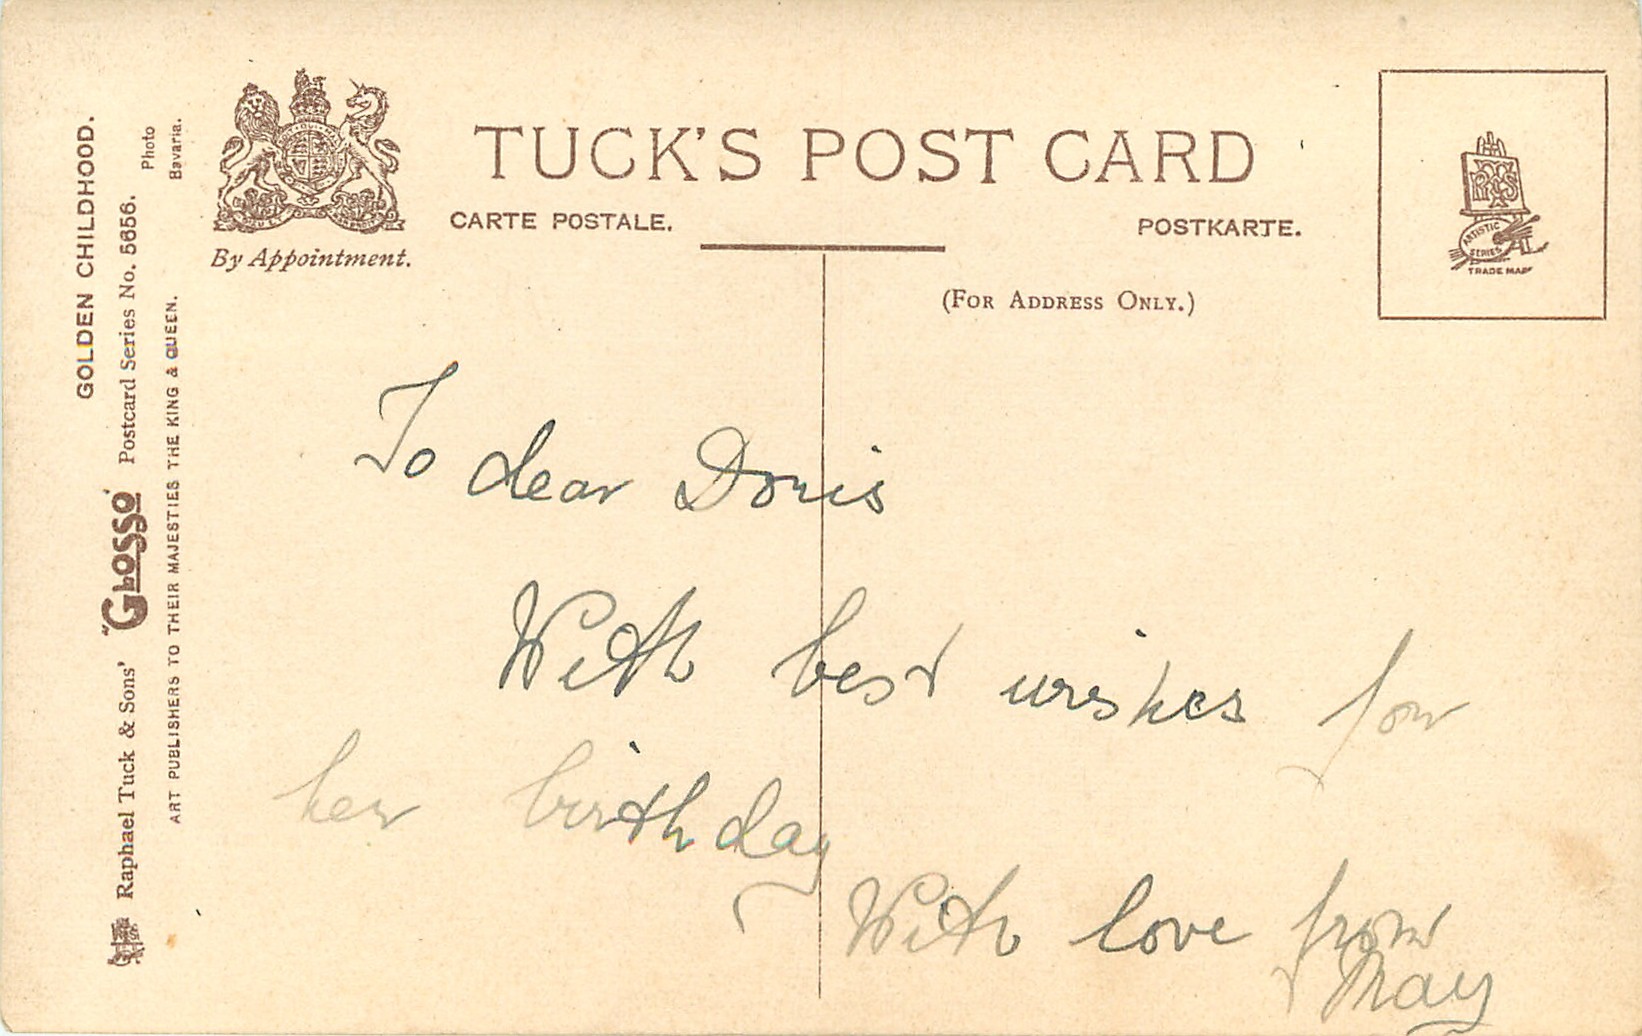 TUCK'S POST CARD
CARTE POSTALE.
POSTKARTE.
By Appointment.
(For Address Only.)
ARTISTIC
SERIES
TRADE MARK
GOLDEN CHILDHOOD.
Raphael Tuck & Sons' "GLOSSO" Postcard Series No. 5656.
Photo
Bavaria.
ART PUBLISHERS TO THEIR MAJESTIES THE KING & QUEEN.
To dear Doris
With best wishes for
her birthday
With love from
May